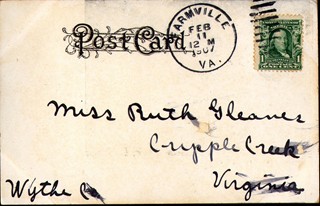 Post Card
FARMVILLE
FEB
11
12 M
1907
VA.
1 1
Miss Ruth Gleaves
Cripple Creek
Wythe Co
Virginia